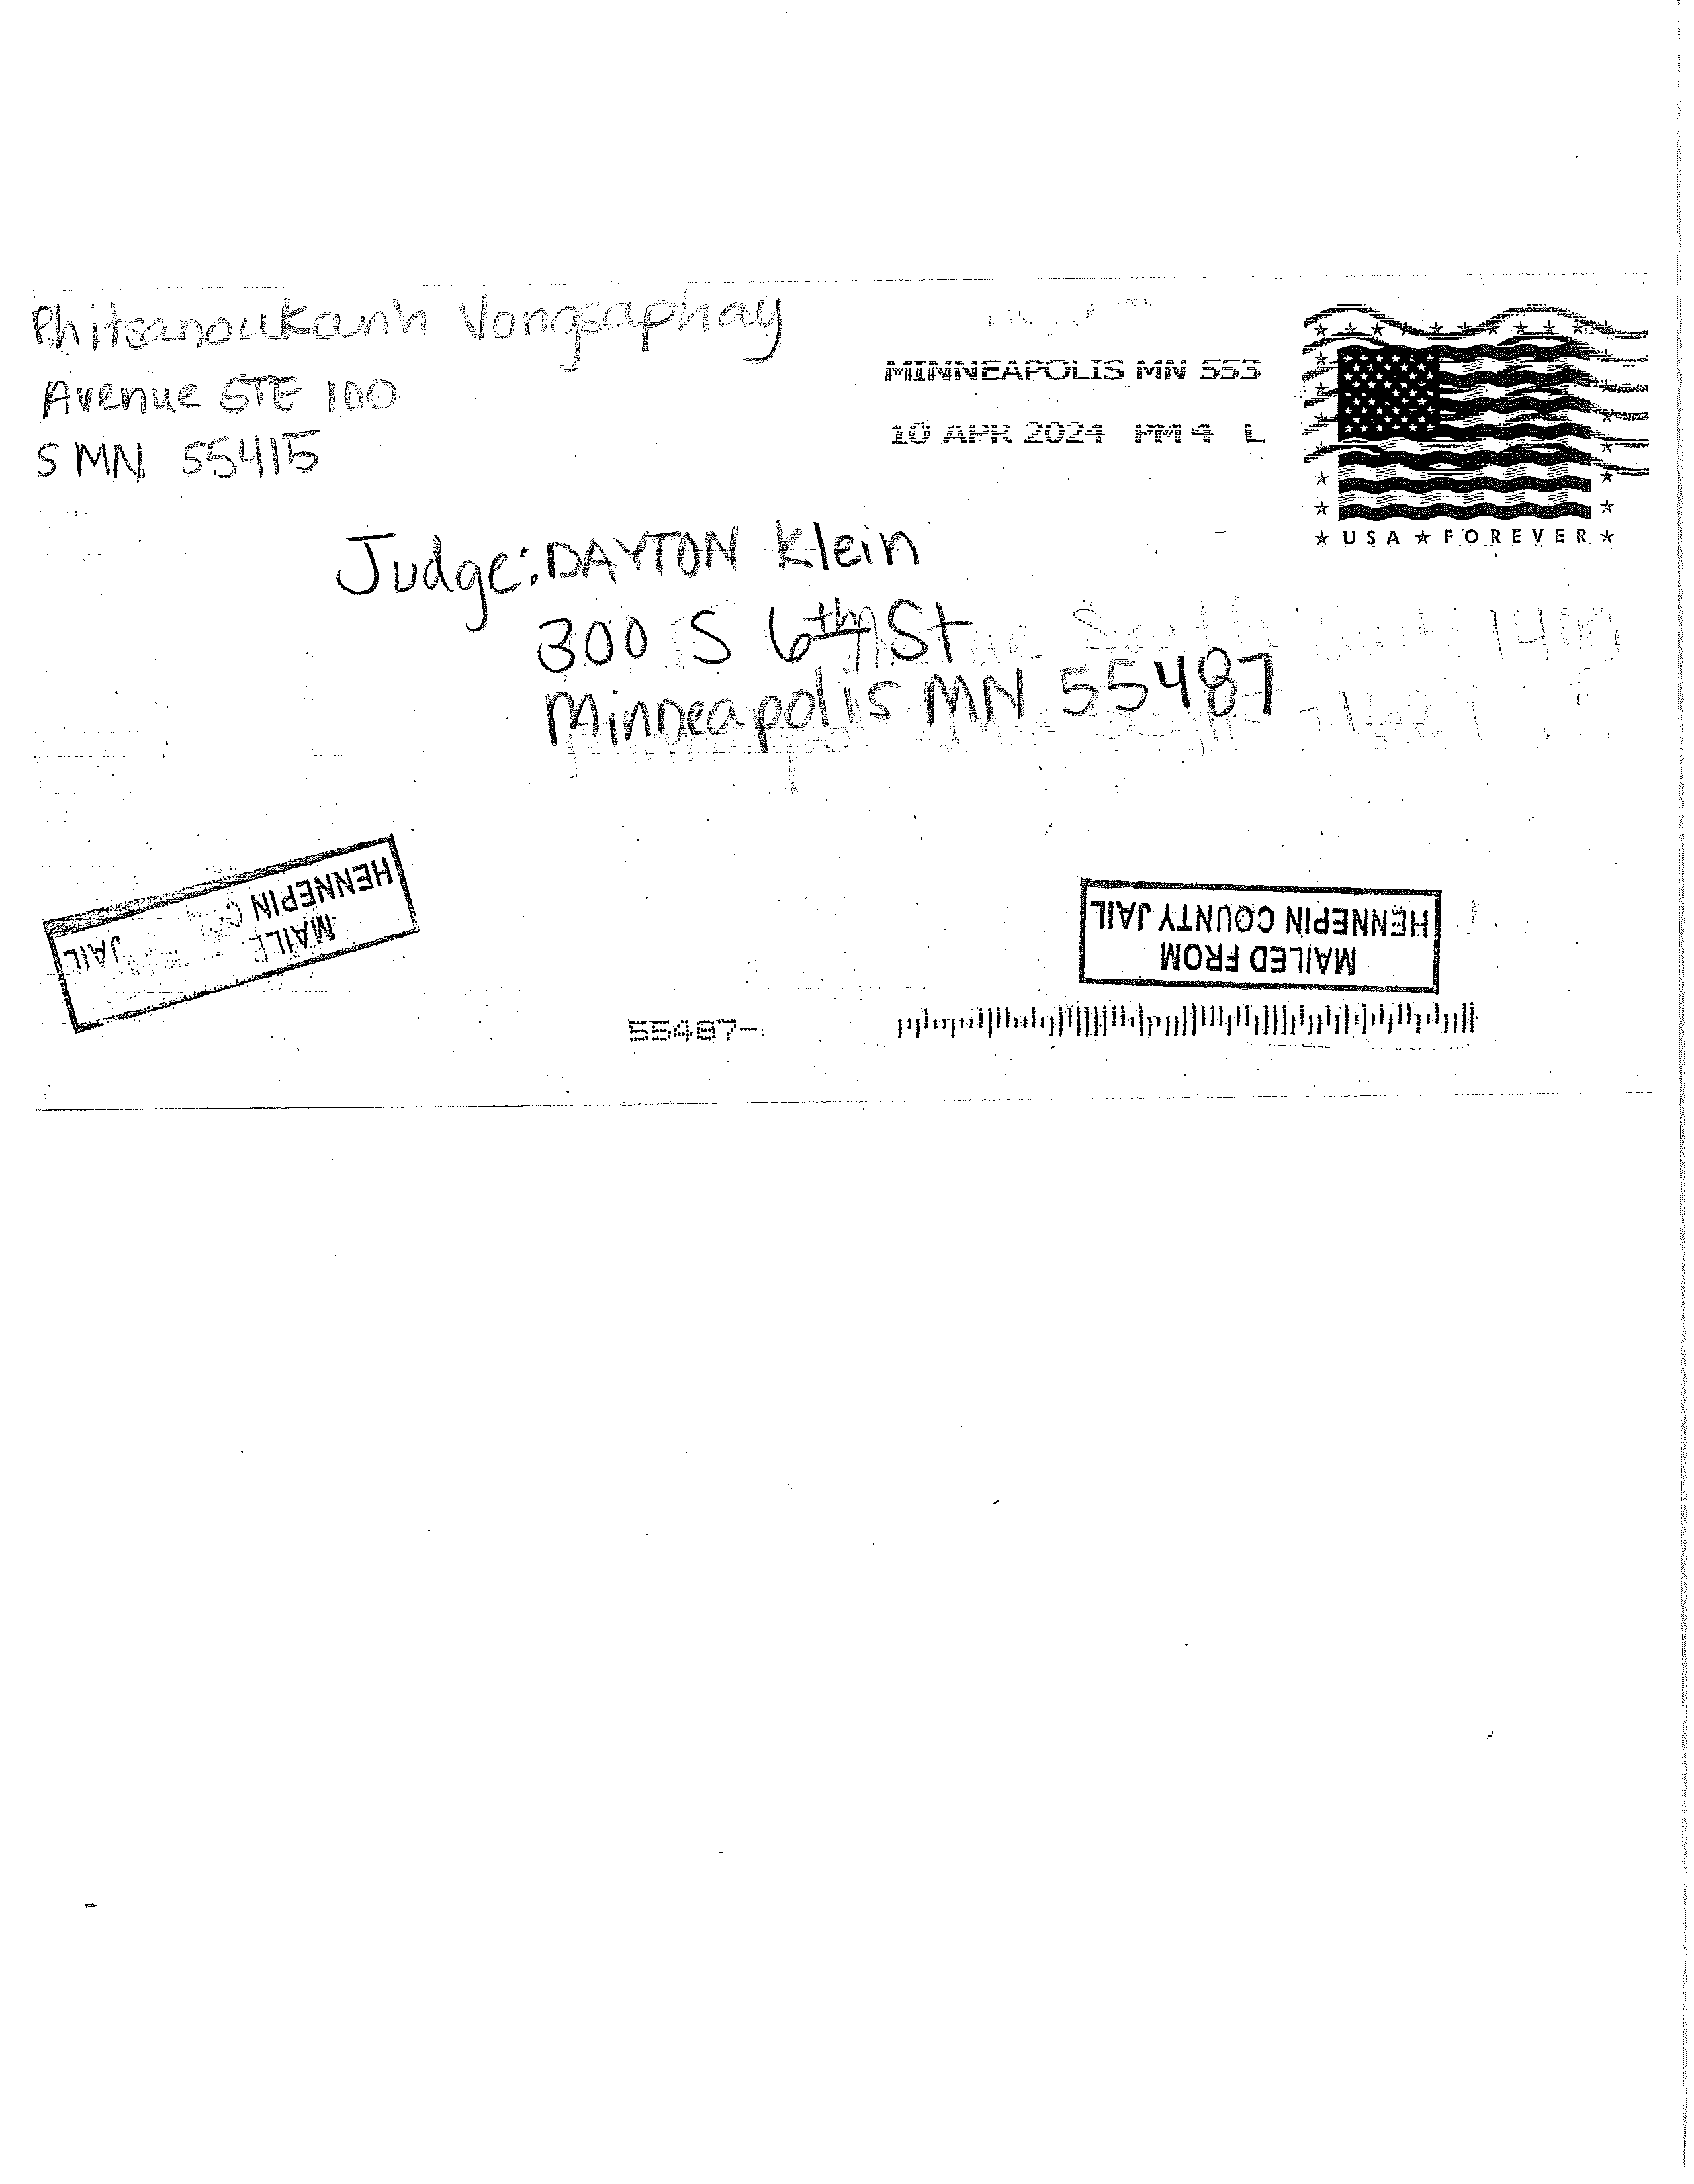 Phitsanoukanh Vongsaphay
Avenue STE 100
S MN 55415
MINNEAPOLIS MN 553
10 APR 2024 PM 4 L
USA FOREVER
Judge: DAYTON Klein
300 S 6th St
South Suite 1400
Minneapolis MN 55487
HENNEPIN
JAIL
MAILED FROM
HENNEPIN COUNTY JAIL
55487-